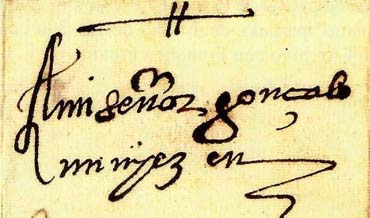 A mi señor gonçalo
minyez en